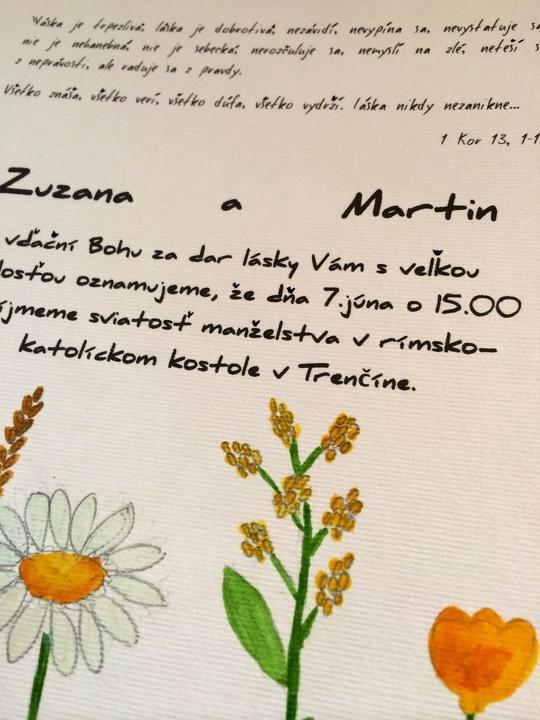 Láska je trpezlivá, láska je dobrotivá; nezávidí, nevypína sa, nevystatuje sa
nie je nehanebná, nie je sebecká, nerozčuluje sa, nemyslí na zlé, neteší
z neprávosti, ale raduje sa z pravdy.
Všetko znáša, všetko verí, všetko dúfa, všetko vydrží. láska nikdy nezanikne...
1 Kor 13,
Zuzana a Martin
vďační Bohu za dar lásky Vám s veľkou
oznamujeme, že dňa 7.júna o 15.00
sviatosť manželstva v rímsko-
katolíckom kostole v Trenčíne.